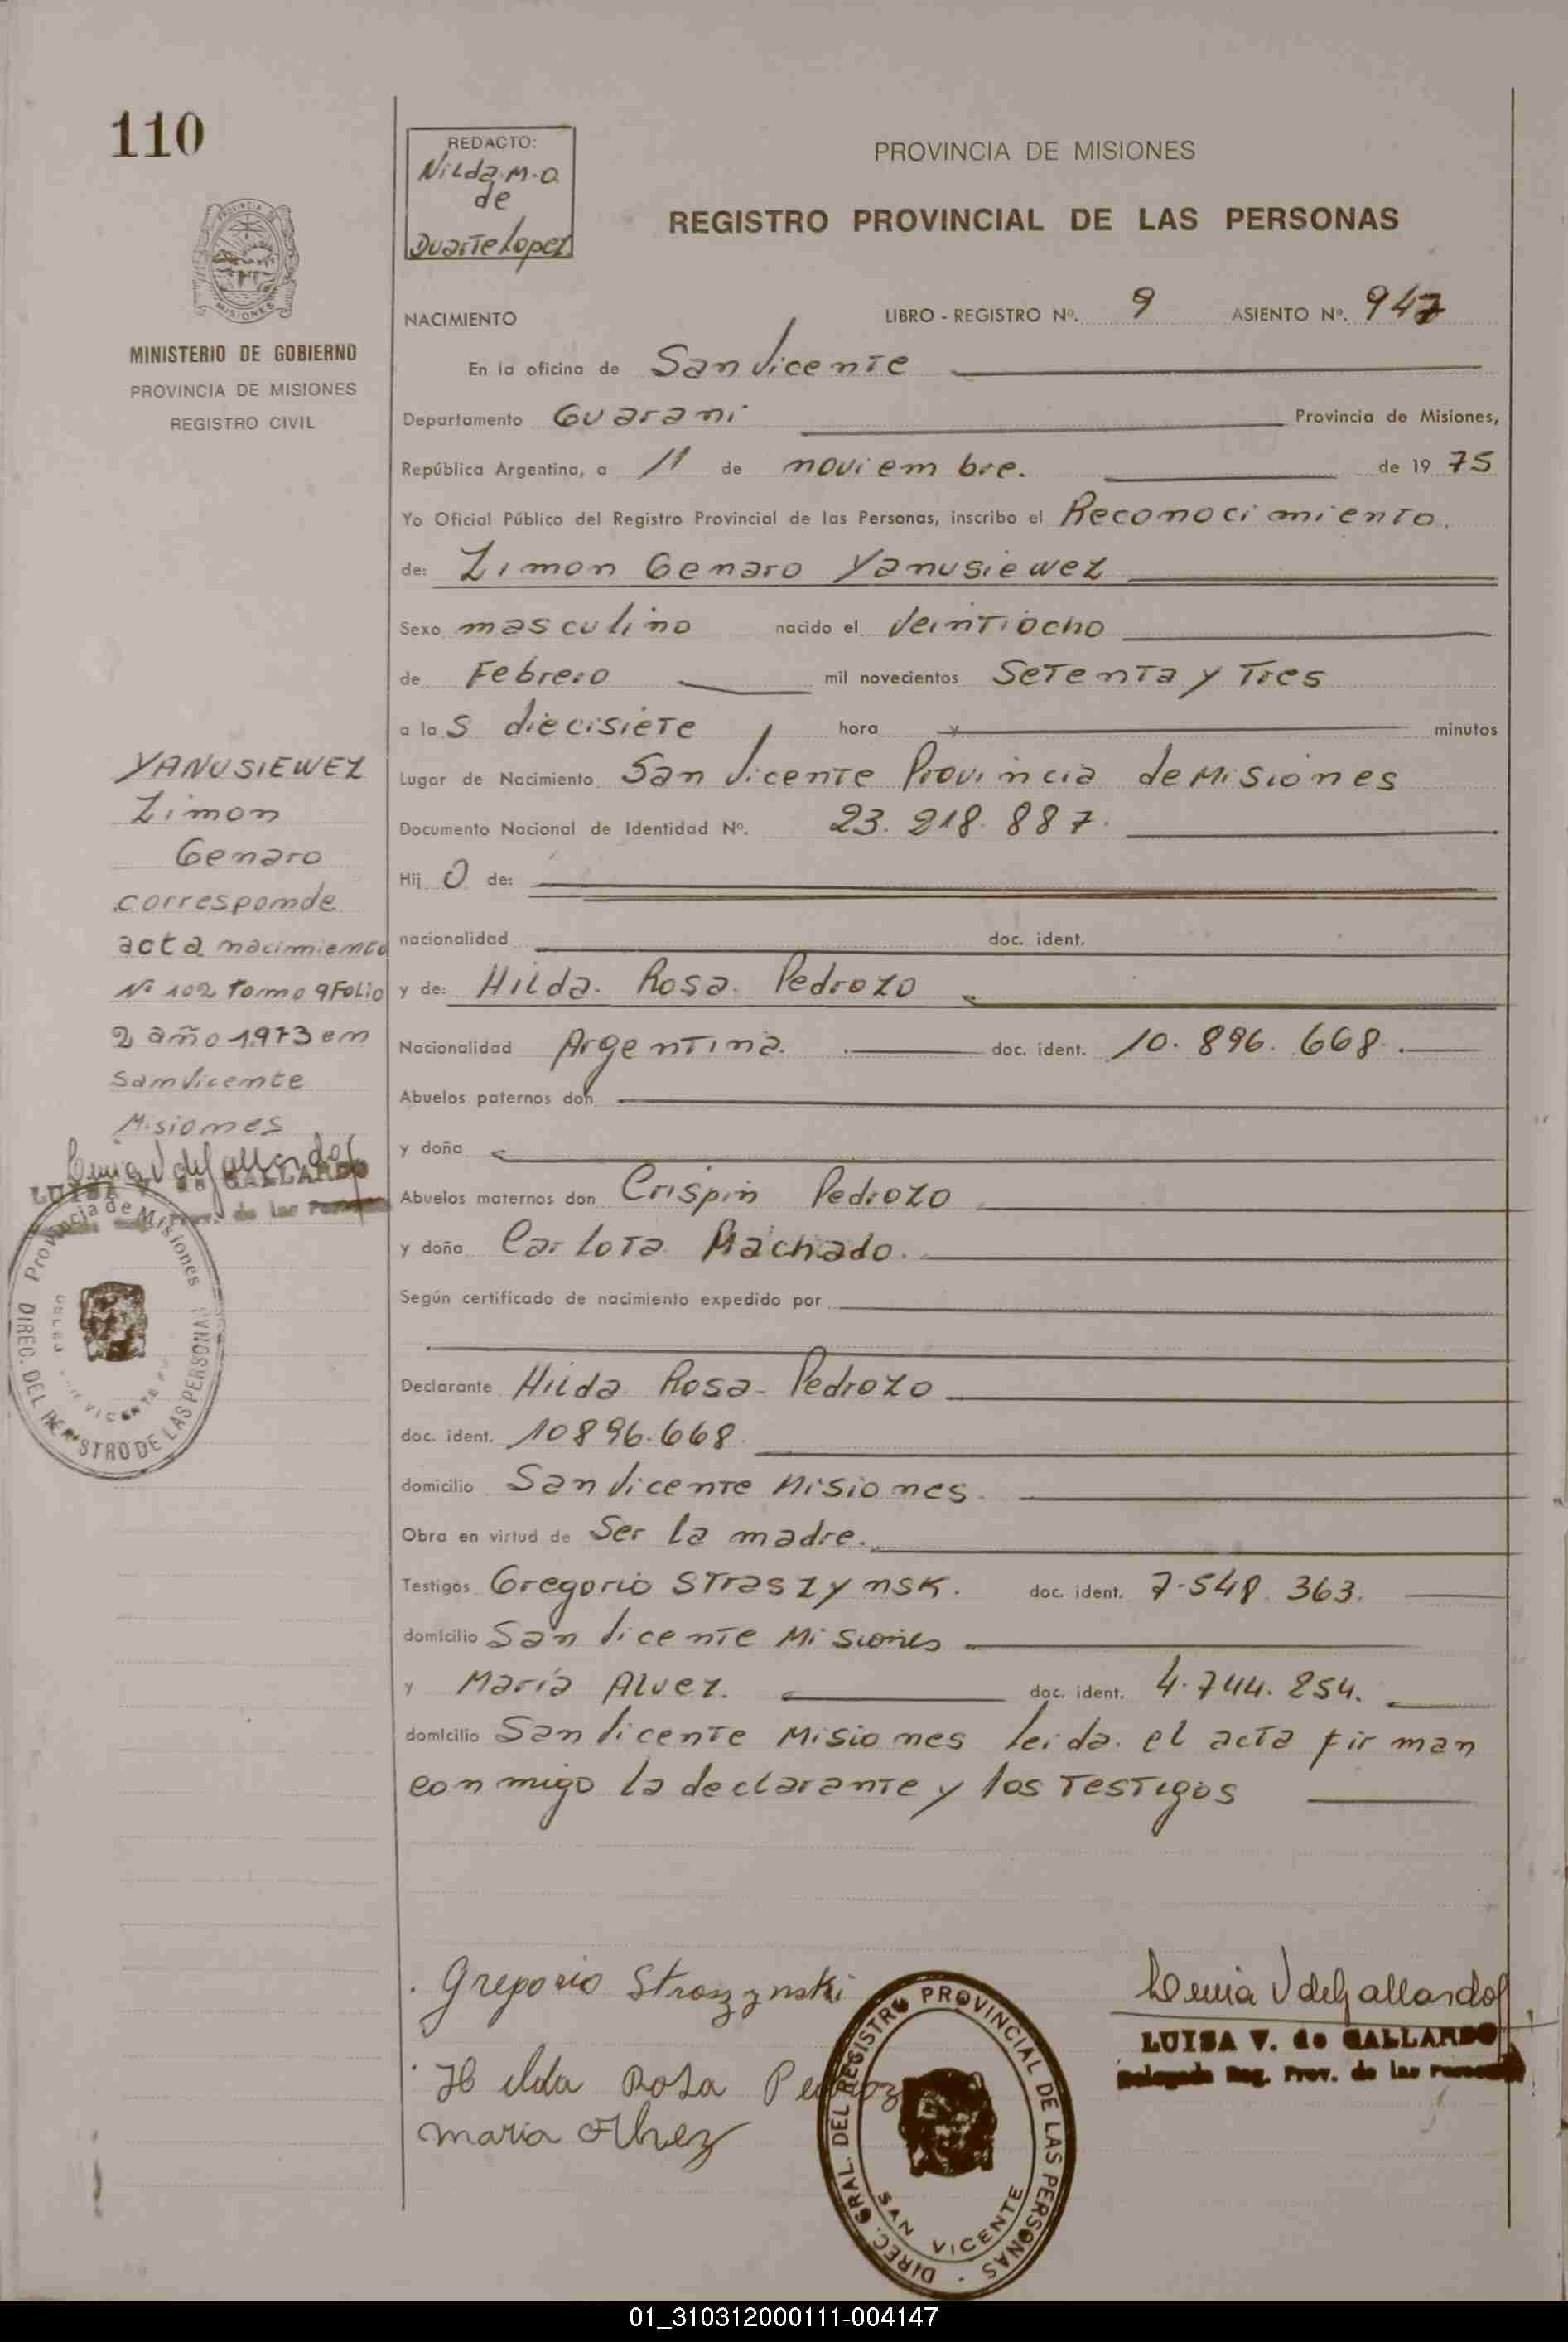 110
REDACTO:
Nilda M.O.
de
Duarte Lopez
PROVINCIA DE MISIONES
REGISTRO PROVINCIAL DE LAS PERSONAS
PROVINCIA DE
MISIONES
MINISTERIO DE GOBIERNO
PROVINCIA DE MISIONES
REGISTRO CIVIL
NACIMIENTO LIBRO - REGISTRO Nº. 9 ASIENTO Nº. 947
En la oficina de San Vicente
Departamento Guarani Provincia de Misiones,
República Argentina, a 11 de noviembre. de 19 75
Yo Oficial Público del Registro Provincial de las Personas, inscribo el Reconocimiento.
de: Zimon Genaro Yanusiewez
Sexo masculino nacido el Veintiocho
de Febrero mil novecientos Setenta y Tres
a las diecisiete hora y minutos
Lugar de Nacimiento San Vicente Provincia de Misiones
Documento Nacional de Identidad Nº. 23.218.887.
Hijo de:
nacionalidad doc. ident.
y de: Hilda. Rosa. Pedrozo
Nacionalidad Argentina. doc. ident. 10.896.668.
Abuelos paternos don
y doña
Abuelos maternos don Crispin Pedrozo
y doña Carlota Machado.
Según certificado de nacimiento expedido por
Declarante Hilda Rosa- Pedrozo
doc. ident. 10896.668
domicilio San Vicente Misiones.
Obra en virtud de Ser la madre.
Testigos Gregorio Straszynsk. doc. ident. 7.548.363.
domicilio San Vicente Misiones
y María Alvez. doc. ident. 4.744.254.
domicilio San Vicente Misiones leida. el acta firman
conmigo la declarante y los Testigos
YANUSIEWEZ
Zimon
Genaro
corresponde
acta nacimiento
Nº 102 tomo 9 Folio
2 año 1973 en
San Vicente
Misiones
Luisa V de Gallardo
LUISA V. de GALLARDO
Prov. de las Personas
Provincia de Misiones
DIREC. DEL REGISTRO DE LAS PERSONAS
VICENTE
Gregorio Straszynski
Hilda Rosa Pedroz
Maria Alvez
DIREC. GRAL. DEL REGISTRO PROVINCIAL DE LAS PERSONAS
SAN VICENTE
Luisa V de Gallardo
LUISA V. de GALLARDO
Delegada Reg. Prov. de las Personas
01_310312000111-004147